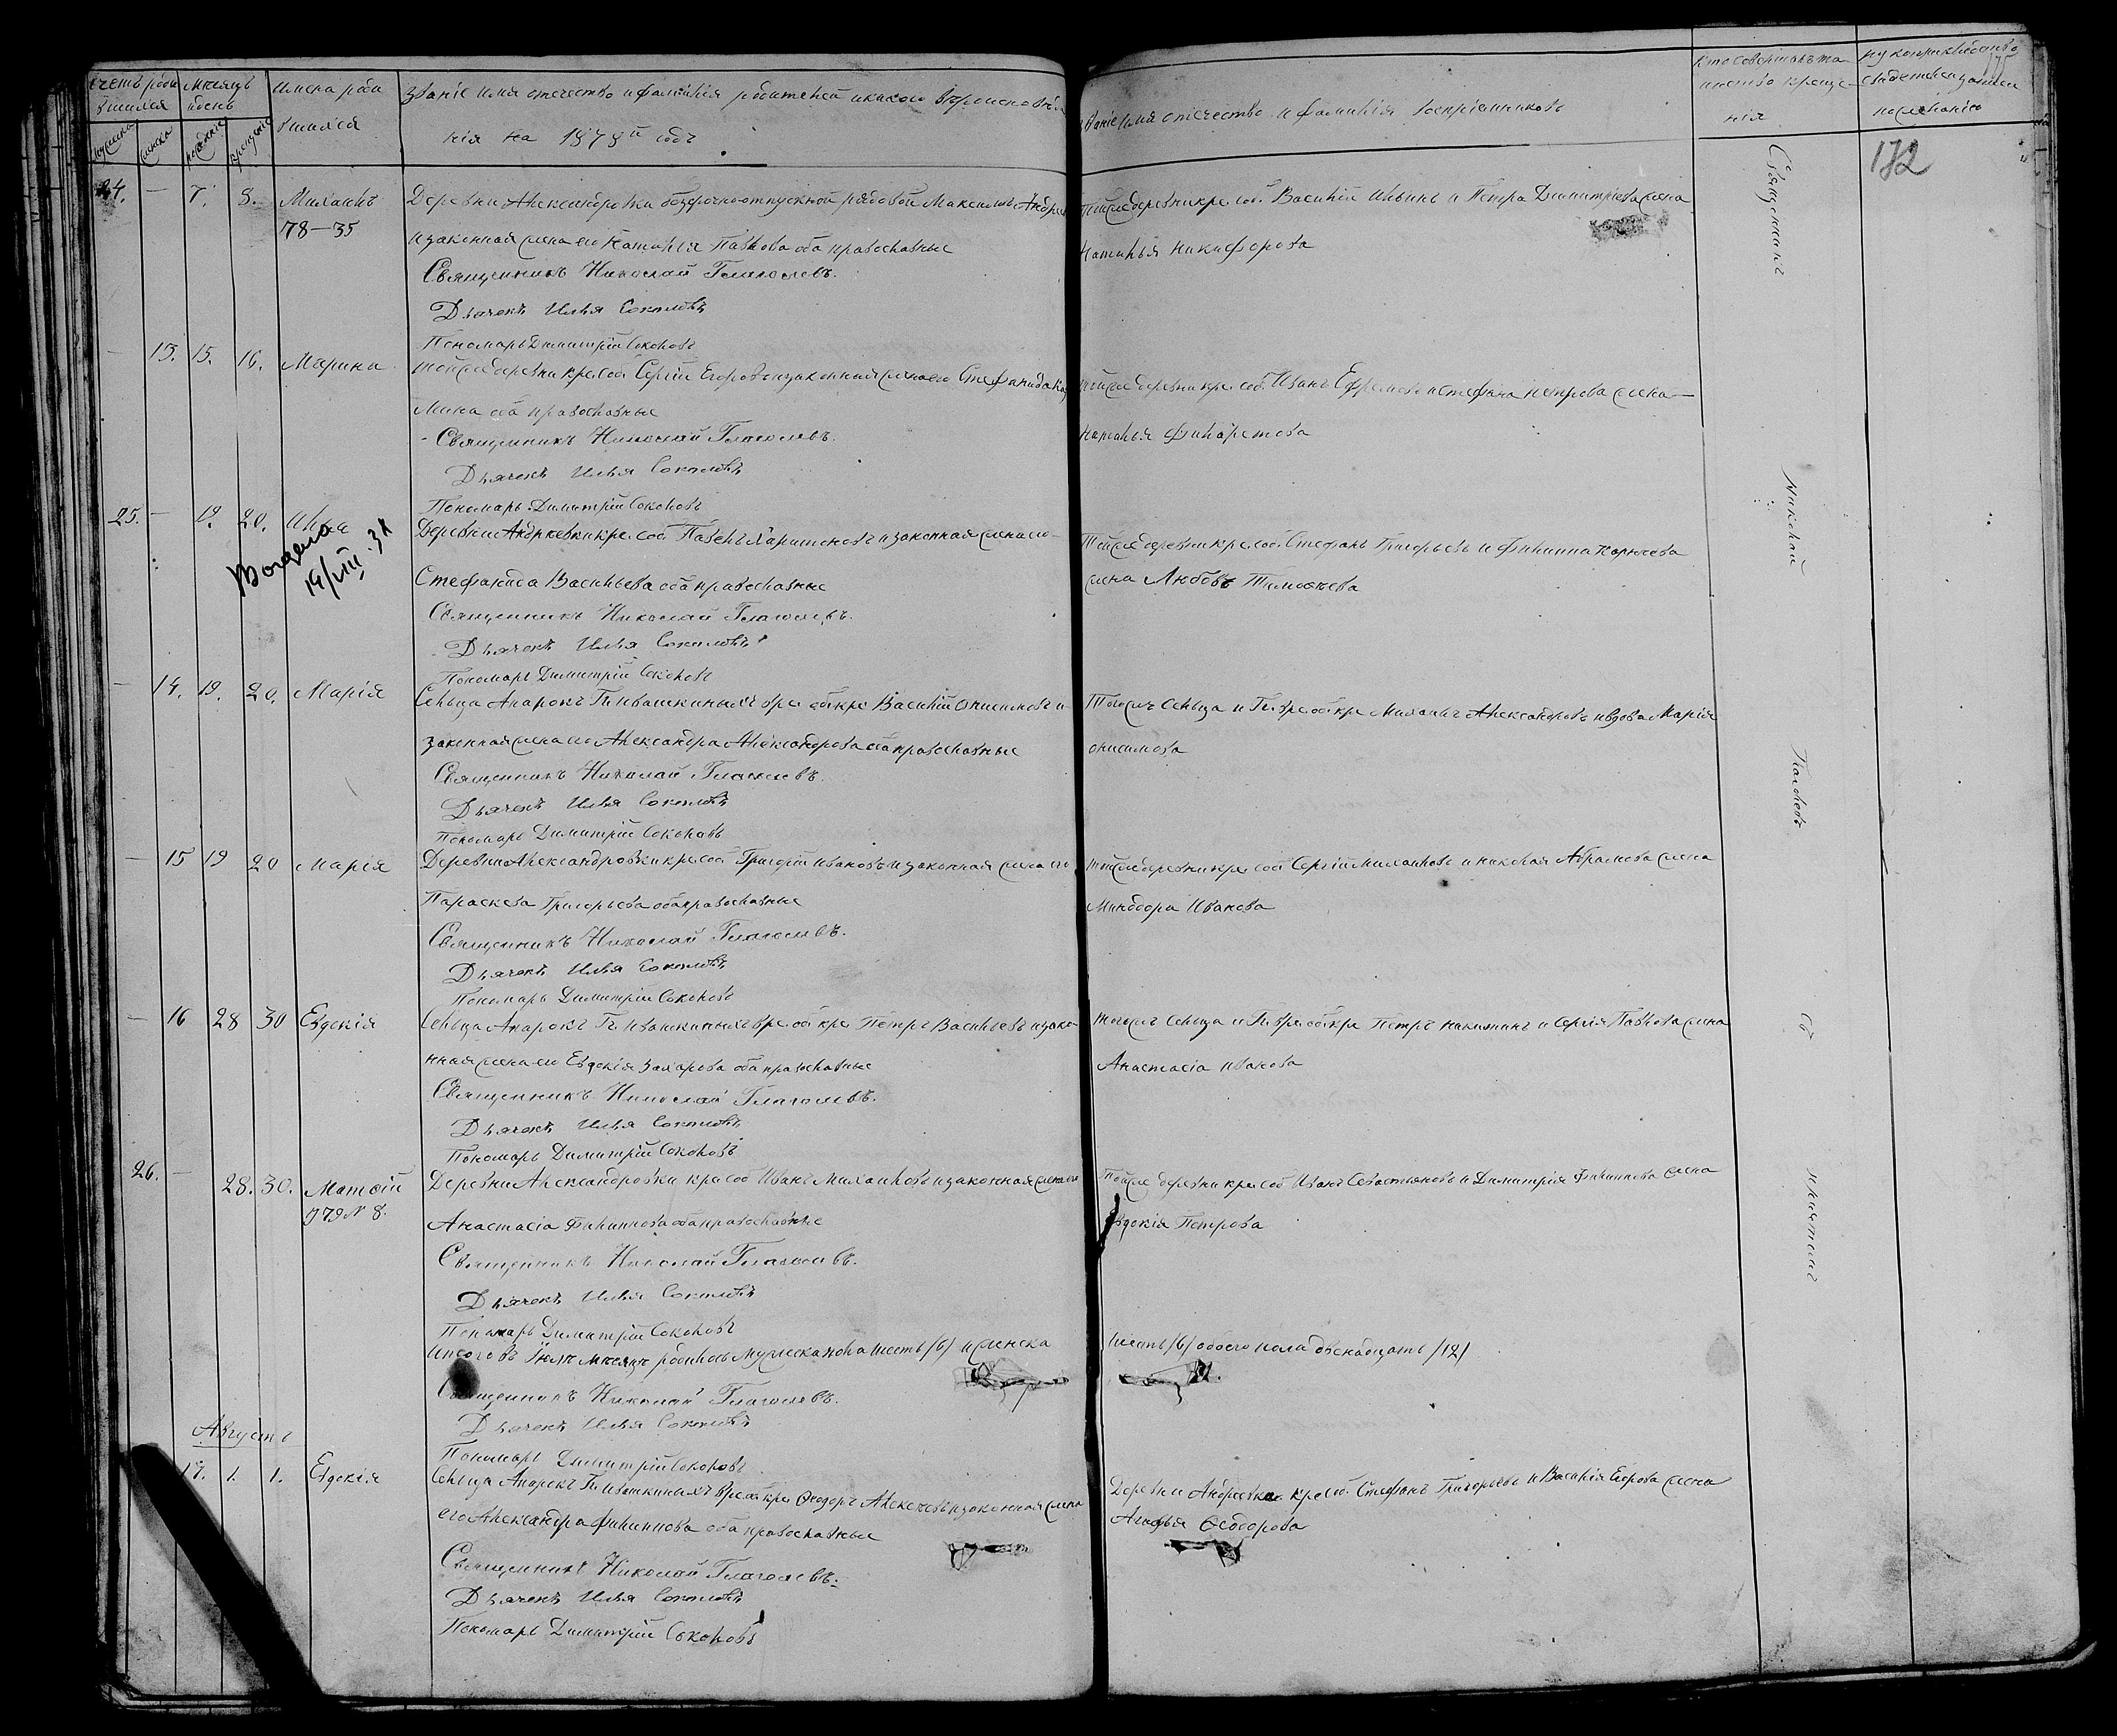 Счетъ роди Мѣсяцъ Имена роди Званіе имя отечество и фамилія родителей и какого вѣроисповѣда
вшихся и день вшихся нія на 1878й годъ
мужеска женска рожденіе крещеніе
Званіе имя отечество и фамилія воспріемниковъ
Кто совершалъ та
инство креще-
нія
Рукоприкладство
свидетелей записи
по желанію
172
24. — 7. 8. Михаилъ Деревни Александровки безсрочноотпускной рядовой Максимъ Андрее
78—35 и законная жена его Наталія Павлова оба православные
Священникъ Николай Глаголевъ.
Дьячекъ Илья Соколовъ
Пономарь Димитрій Соколовъ
Тойже деревни кре. соб. Василій Ильинъ и Петра Димитріева жена
Наталья Никифорова
— 13. 15. 16. Марина тойже деревни кре. соб. Сергій Егоровъ и законная жена его Стефанида
оба православные
Священникъ Николай Глаголевъ.
Дьячекъ Илья Соколовъ
Пономарь Димитрій Соколовъ
тойже деревни кре. соб. Иванъ Ефремовъ и Стефана Петрова жена
Наталья Филаретова
25. — 19. 20. Илья Деревни Андреевки кре. соб. Павелъ Харитоновъ и законная жена его
19/VIII. 31
Стефанида Васильева оба православные
Священникъ Николай Глаголевъ.
Дьячекъ Илья Соколовъ
Пономарь Димитрій Соколовъ
Тойже деревни кре. соб. Стефанъ Григорьевъ и Филиппа Корнѣева
жена Любовь Тимофеева
— 14. 19. 20. Марія Сельца Анарокъ Г. Ивашкиныхъ вре. об. кре. Василій Онисимовъ и
законная жена его Александра Александрова оба православные
Священникъ Николай Глаголевъ.
Дьячекъ Илья Соколовъ
Пономарь Димитрій Соколовъ
Тогожъ Сельца и Гг. вре. об. кре. Михаилъ Александровъ и вдова Марія
Онисимова
— 15 19 20 Марія Деревни Александровки кре. соб. Григорій Ивановъ и законная жена его
Параскева Григорьева оба православные
Священникъ Николай Глаголевъ.
Дьячекъ Илья Соколовъ
Пономарь Димитрій Соколовъ
тойже деревни кре. соб. Сергій Михаиловъ и Николая Абрамова жена
Минодора Иванова
— 16 28 30 Евдокія Сельца Анарокъ Г. Ивашкиныхъ вре. об. кре. Петръ Васильевъ и зако
нная жена его Евдокія Захарова оба православные
Священникъ Николай Глаголевъ.
Дьячекъ Илья Соколовъ
Пономарь Димитрій Соколовъ
тогожъ Сельца и Гг. вре. об. кре. Петръ Никитинъ и Сергія Павлова жена
Анастасія Иванова
26. — 28. 30. Матѳій Деревни Александровки кре. соб. Иванъ Михаиловъ и законная жена его
979 № 8. Анастасія Филиппова оба православные
Священникъ Николай Глаголевъ.
Дьячекъ Илья Соколовъ
Пономарь Димитрій Соколовъ
Тойже деревни кре. соб. Иванъ Севастьяновъ и Димитрія Филиппова жена
Евдокія Петрова
Итого въ Іюлѣ мѣсяцѣ родилось мужеска пола шесть /6/ и женска
шесть /6/ обоего пола двенадцать /12/
Священникъ Николай Глаголевъ.
Дьячекъ Илья Соколовъ
Пономарь Димитрій Соколовъ
Августъ
17. 1. 1. Евдокія Сельца Анарокъ Г. Ивашкиныхъ вре. об. кре. Ѳеодоръ Алексеевъ и законная жена
его Александра Филиппова оба православные
Священникъ Николай Глаголевъ.
Дьячекъ Илья Соколовъ
Пономарь Димитрій Соколовъ
Деревни Андреевки кре. соб. Стефанъ Григорьевъ и Василія Егорова жена
Агафья Ѳеодорова
Священникъ
Николай
Глаголевъ
Съ
причтомъ